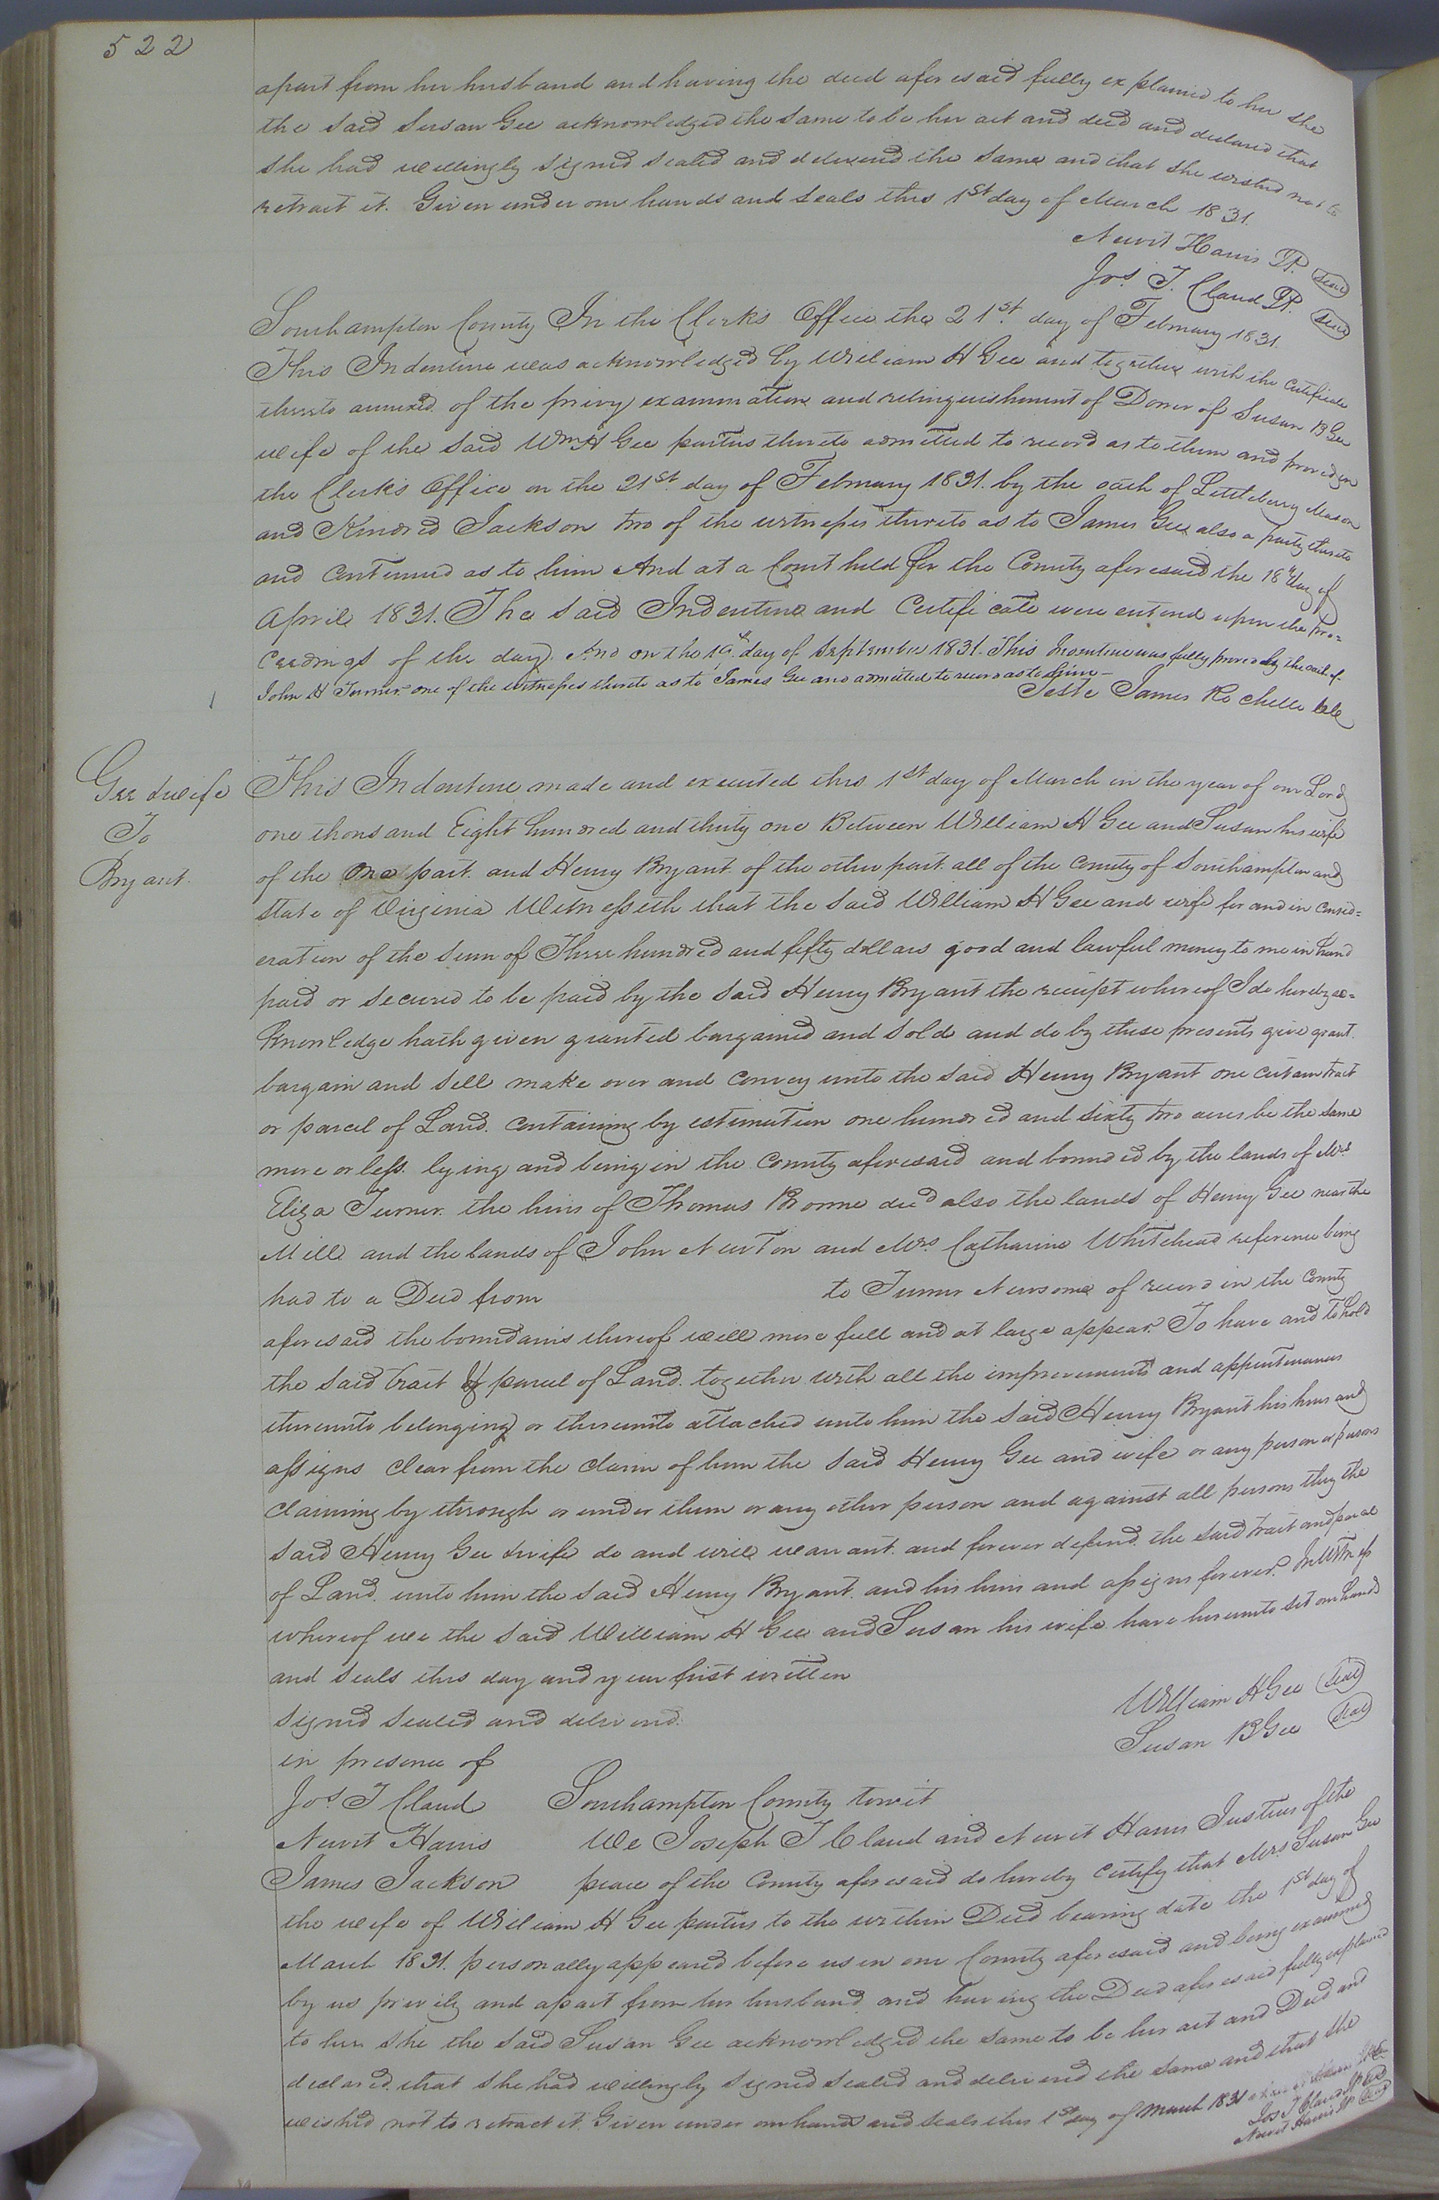 522
apart from her husband and having the deed aforesaid fully explained to her she
the said Susan Gee acknowledged the same to be her act and deed and declared that
she had willingly signed sealed and delivered the same and that she wished not to
retract it. Given under our hands and seals this 1st day of March 1831.
Newit Harris JP. Seal
Jos. T. Claud JP. Seal
Southampton County In the Clerk's Office the 21st. day of February 1831.
This Indenture was acknowledged by William H Gee and together with the certificate
thereto annexed of the privy examination and relinquishment of Dower of Susan B Gee
wife of the said Wm H Gee parties thereto admitted to record as to them and proved in
the Clerk's Office on the 21st. day of February 1831. by the oath of Littleberry Mason
and Kindred Jackson two of the witnesses thereto as to James Gee also a party thereto
and continued as to him And at a Court held for the County aforesaid the 18th day of
April 1831. The said Indenture and Certificate were entered upon the pro=
ceedings of the day. And on the 19th day of September 1831. This Indenture was fully proved by the oath of
John H Turner one of the witnesses thereto as to James Gee and admitted to record as to him
Teste James Rochelle
Gee & wife
To
Bryant.
This Indenture made and executed this 1st day of March in the year of our Lord
one thousand Eight hundred and thirty one Between William H Gee and Susan his wife
of the One part. and Henry Bryant of the other part. all of the County of Southampton and
state of Virginia Witnesseth that the said William H Gee and wife for and in consid=
eration of the sum of Three hundred and fifty dollars good and lawful money to me in hand
paid or secured to be paid by the said Henry Bryant the receipt whereof I do hereby ac=
knowledge hath given granted bargained and sold and do by these presents give grant
bargain and sell make over and convey unto the said Henry Bryant one certain tract
or parcel of Land. containing by estimation one hundred and sixty two acres be the same
more or less. lying and being in the County aforesaid and bounded by the lands of Mrs
Eliza Turner. the heirs of Thomas Boone decd also the lands of Henry Gee near the
Mill and the lands of John Newton and Mrs Catharine Whitehead reference being
had to a Deed from to Turner Newsome of record in the County
aforesaid the boundaries thereof will more full and at large appear. To have and to hold
the said tract or parcel of Land. together with all the improvements and appurtenances
thereunto belonging or thereunto attached unto him the said Henry Bryant his heirs and
assigns clear from the claim of him the said Henry Gee and wife or any person or persons
claiming by through or under them or any other person and against all persons they the
said Henry Gee & wife do and will warrant. and forever defend. the said tract and parcel
of Land. unto him the said Henry Bryant. and his heirs and assigns forever. In Witness
whereof we the said William H Gee and Susan his wife have hereunto set our hands
and seals this day and year first written
Signed sealed and delivered.
in presence of
William H Gee Seal
Susan B Gee Seal
Jos. T Claud
Newit Harris
James Jackson
Southampton County towit
We Joseph T Claud and Newit Harris Justices of the
peace of the County aforesaid do hereby certify that Mrs. Susan Gee
the wife of William H Gee parties to the within Deed bearing date the 1st day of
March 1831. personally appeared before us in our County aforesaid and being examined
by us privily and apart from her husband. and having the Deed aforesaid fully explained
to her she the said Susan Gee acknowledged the same to be her act and Deed and
declared. that she had willingly signed sealed and delivered the same and that she
wished not to retract it Given under our hands and seals this 1st day of March 1831
Jos T Claud JP Seal
Newit Harris JP Seal